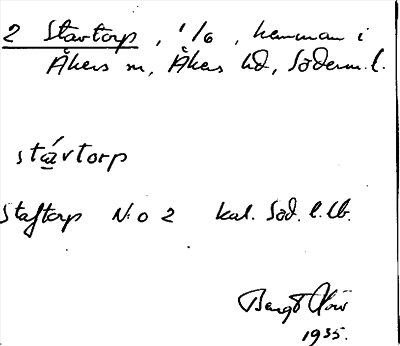 2 Stavtorp, 1/6, hemman i
Åkers sn, Åkers hd, Söderm. l.
stávtorp
Staftorp N:o 2 kal. Söd. l. lb.
Bengt
1935.